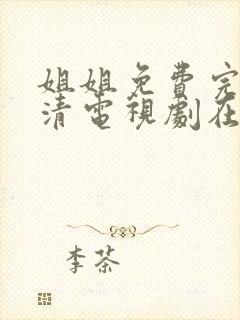 姐姐免費完
清電視劇在
李茶